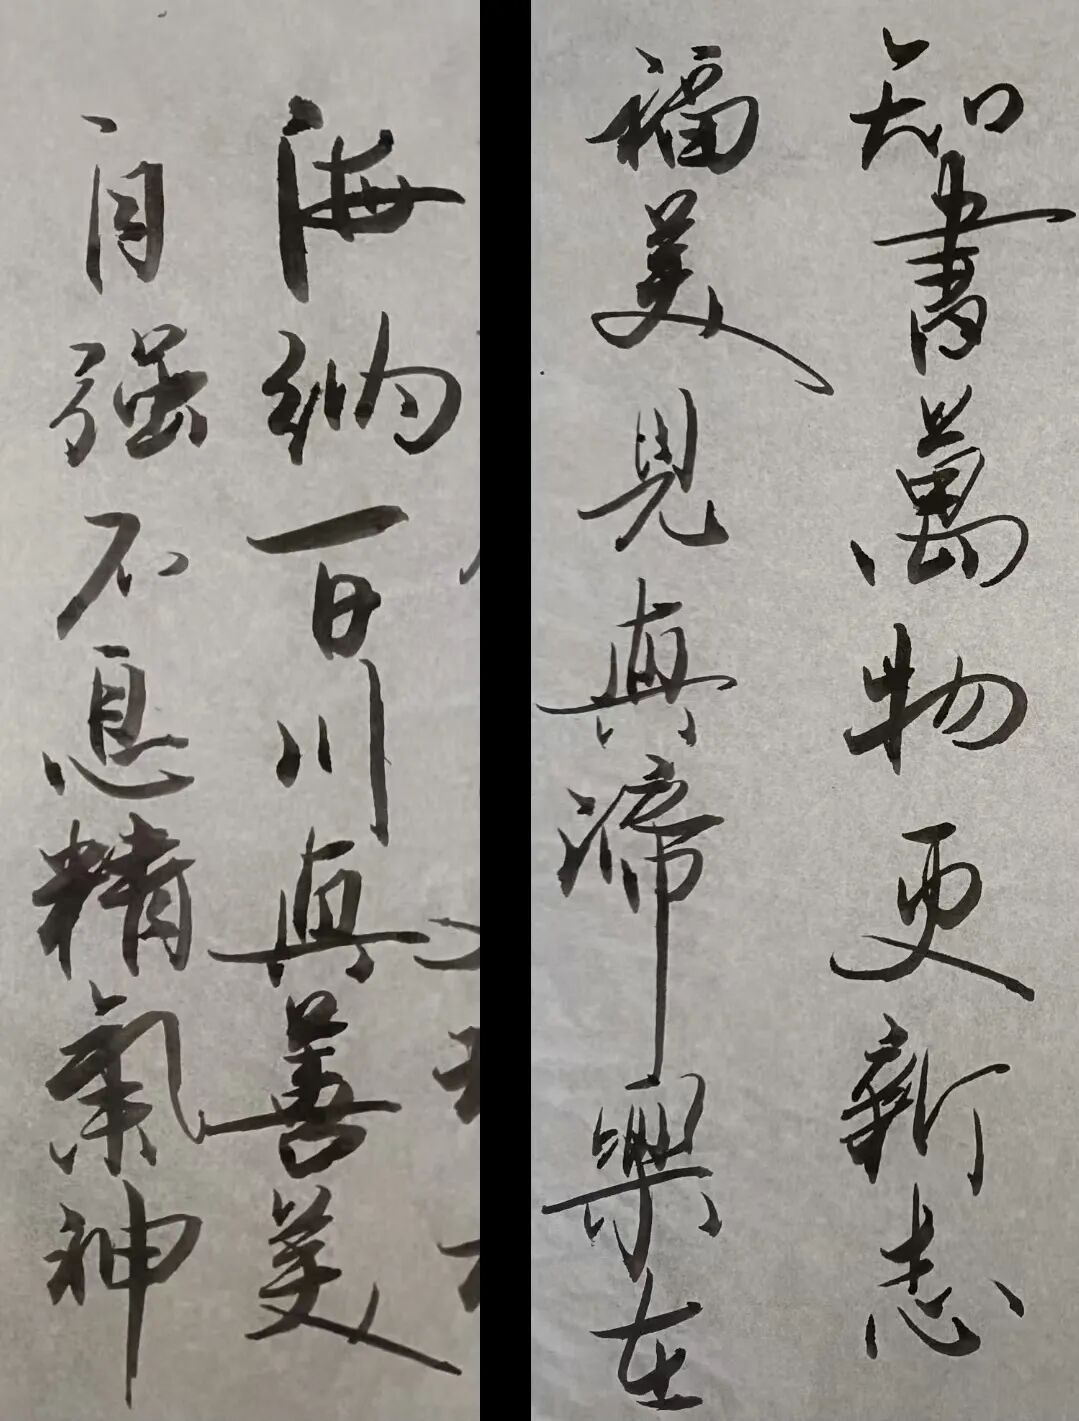 知書萬物更新志
福美見真諦樂在
海納百川真善美
自强不息精氣神